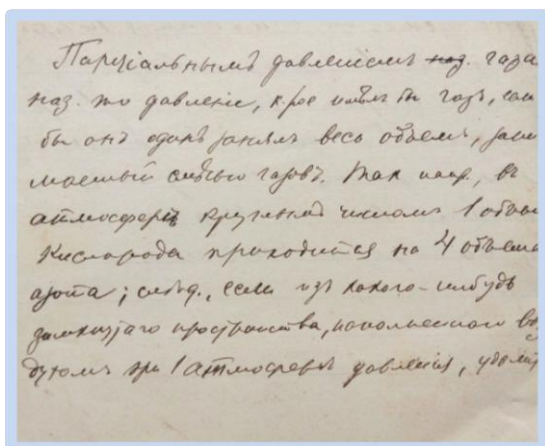 Парціальнымъ давленіемъ наз. газа
наз. то давленіе, к-рое имѣлъ бы газъ, если
бы онъ одинъ занялъ весь объемъ, зани
маемый смѣсью газовъ. Так напр., въ
атмосферѣ круглымъ числомъ 1 объем
кислорода приходится на 4 объема
азота; слѣд., если изъ какого-нибудь
замкнутаго пространства, наполненнаго воз
духомъ при 1 атмосферѣ давленія, удалить